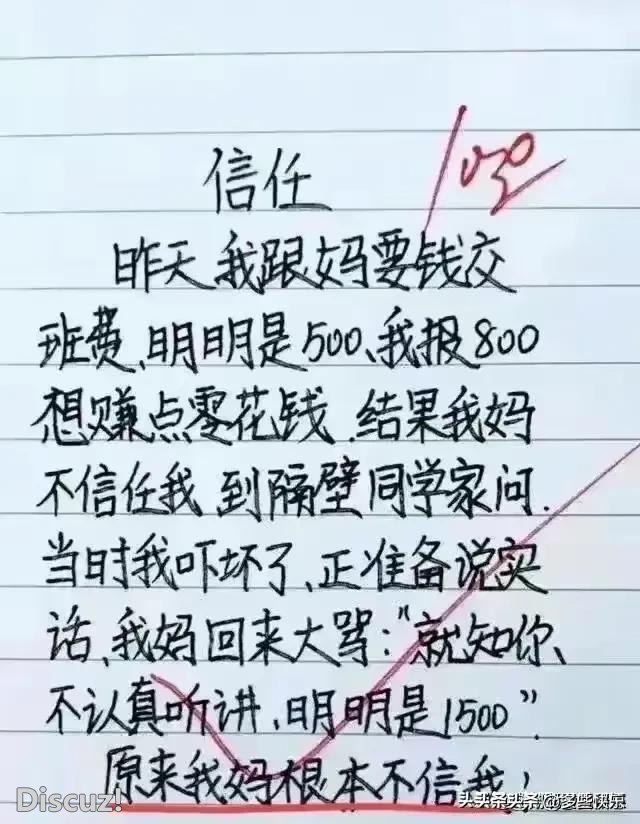 100
信任
昨天我跟妈要钱交
班费、明明是500、我报800
想赚点零花钱.结果我妈
不信任我 到隔壁同学家问.
当时我吓坏了、正准备说实
话、我妈回来大骂:"就知你、
不认真听讲、明明是1500"
原来我妈根本不信我!
Discuz!